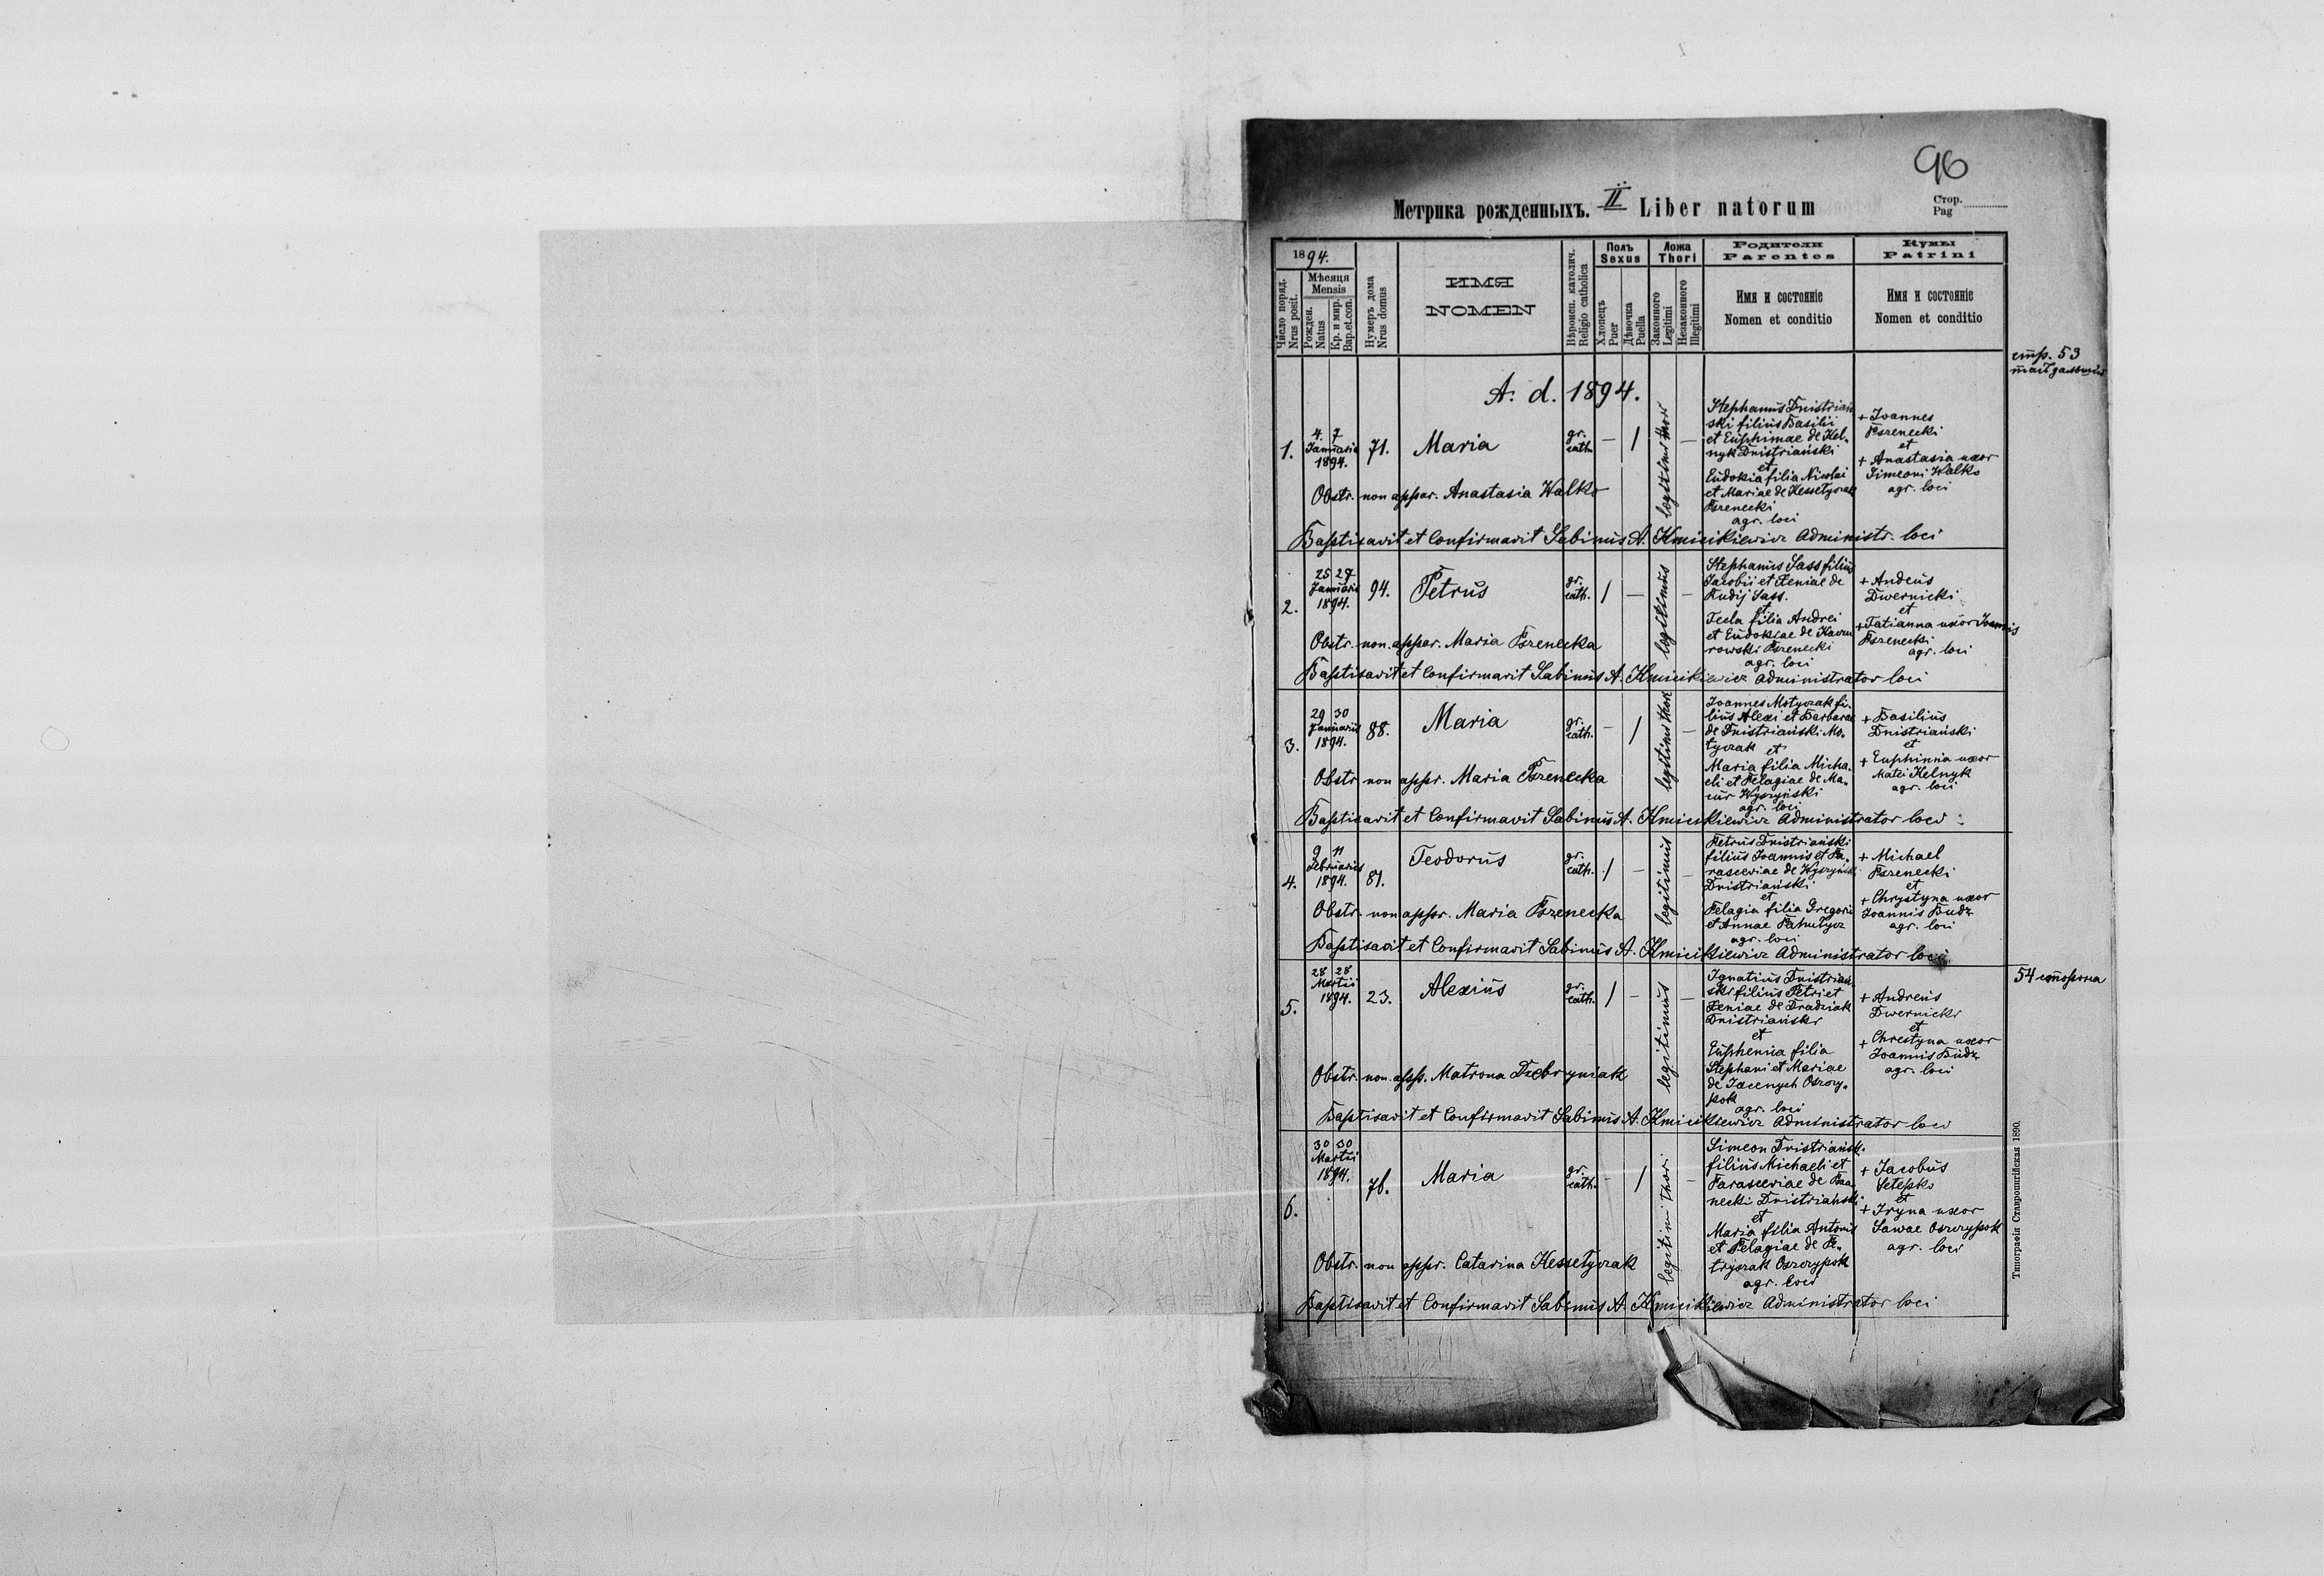 96
Метрика рожденныхъ. II Liber natorum
Стор.
Pag
1894.
Число поряд.
Nrus posit.
Мѣсяця
Mensis
Рожден.
Natus
Кр. и мир.
Bap.et.con.
Нумеръ дома
Nrus domus
ИМЯ
NOMEN
Вѣроисп. католич.
Religio catholica
Полъ
Sexus
Хлопецъ
Puer
Дѣвочка
Puella
Ложа
Thori
Законного
Legitimi
Незаконного
Illegitimi
Родители
Parentes
Имя и состояніе
Nomen et conditio
Кумы
Patrini
Имя и состояніе
Nomen et conditio
стр. 53
A. d. 1894.
1.
4. 7
Januarii
1894.
71.
Maria
gr.
cath.
— / —
legitimi thori
Stephanus Dnistriań
ski filius Basilii
et Euphimae de Kel-
nyk Dnistriański
et
Eudokia filia Nicolai
et Mariae de Hessetyczak
Pszenecki
agr. loci
+ Joannes
Pszenecki
et
+ Anastasia uxor
Simeoni Walko
agr. loci
Obstr. non appar. Anastasia Walko
Baptisavit et Confirmavit Sabinus A. Kmicikiewicz Administr. loci
2.
25 27
Januarii
1894.
94.
Petrus
gr.
cath.
/ — —
legitimus
Stephanus Sass filius
Jacobii et Xeniae de
Rudij Sass.
et
Tecla filia Andrei
et Eudokiae de
rowski Pszenecki
agr. loci
+ Andeus
Dwernicki
et
+ Tatianna uxor Joannis
Pszenecki
agr. loci
Obstr. non. appar. Maria Pszenecka
Baptisavit et Confirmavit Sabinus A. Kmicikiewicz Administrator loci
3.
29 30
Januarii
1894.
88.
Maria
gr.
cath.
— / —
legitimi thori
Joannes Motyczak fi-
lius Alexi et Barbarae
de Dnistriański Mo-
tyczak et
Maria filia Micha-
eli et Pelagiae de Ma-
cur Wyszyński
agr. loci
+ Basilius
Dnistriański
et
+ Euphimia uxor
Matei Kelnyk
agr. loci
Obstr non appr. Maria Pszenecka
Baptisavit et Confirmavit Sabinus A. Kmicikiewicz Administrator loci
4.
9 11
Februarii
1894.
81.
Teodorus
gr.
cath.
/ — —
legitimus
Petrus Dnistriański
filius Joannis et Pa-
rasceviae de Wyszyński
Dnistriański
et
Pelagia filia Gregorii
et Annae Pahutycz
agr. loci
+ Michael
Pszenecki
et
+ Chrystyna uxor
Joannis Budz
agr. loci
Obstr. non appr. Maria Pszenecka
Baptisavit et Confirmavit Sabinus A. Kmicikiewicz Administrator loci
54 сторона
5.
28 28
Martii
1894.
23.
Alexius
gr.
cath.
/ — —
legitimus
Ignatius Dnistriań
ski filius Petri et
Xeniae de Dradziak
Dnistriański
et
Euphemia filia
Stephani et Mariae
de Jacenych Oszczy-
pok
agr. loci
+ Andreus
Dwernicki
et
+ Chrestyna uxor
Joannis Budz
agr. loci
Obstr. non. app. Matrona Dzebryniak
Baptisavit et Confirmavit Sabinus A. Kmicikiewicz Administrator loci
6.
30 30
Martii
1894.
76.
Maria
gr.
cath.
— / —
legitimi thori
Simeon Dnistriańsk.
filius Michaeli et
Parasceviae de Psze-
necki Dnistriański
et
Maria filia Antonii
et Pelagiae de Pe-
tryczak Oszczypok
agr. loci
+ Jacobus
Setepko
et
+ Iryna uxor
Sawae Oszczypok
agr. loci
Obstr. non appr. Catarina Hessetyczak
Baptisavit et Confirmavit Sabinus A. Kmicikiewicz Administrator loci
Типографія Ставропигійская 1890.